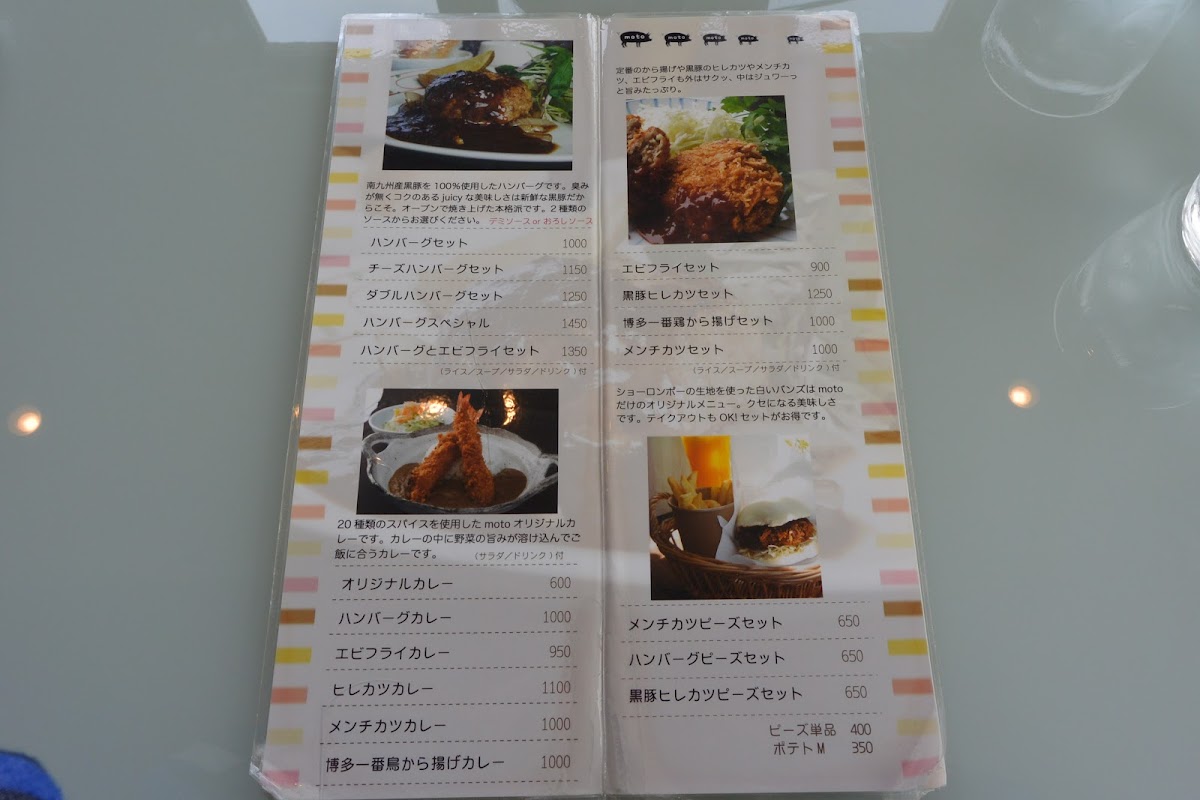 南九州産黒豚を100%使用したハンバーグです。臭み
が無くコクのあるjuicyな美味しさは新鮮な黒豚だか
らこそ。オーブンで焼き上げた本格派です。2種類の
ソースからお選びください。 デミソース or おろしソース
ハンバーグセット 1000
チーズハンバーグセット 1150
ダブルハンバーグセット 1250
ハンバーグスペシャル 1450
ハンバーグとエビフライセット 1350
(ライス／スープ／サラダ／ドリンク)付
20種類のスパイスを使用したmotoオリジナルカ
レーです。カレーの中に野菜の旨みが溶け込んでご
飯に合うカレーです。 (サラダ／ドリンク)付
オリジナルカレー 600
ハンバーグカレー 1000
エビフライカレー 950
ヒレカツカレー 1100
メンチカツカレー 1000
博多一番鳥から揚げカレー 1000
moto moto moto moto moto
定番のから揚げや黒豚のヒレカツやメンチカ
ツ、エビフライも外はサクッ、中はジュワーっ
と旨みたっぷり。
エビフライセット 900
黒豚ヒレカツセット 1250
博多一番鶏から揚げセット 1000
メンチカツセット 1000
(ライス／スープ／サラダ／ドリンク)付
ショーロンポーの生地を使った白いバンズはmoto
だけのオリジナルメニュー。クセになる美味しさ
です。テイクアウトもOK!セットがお得です。
メンチカツビーズセット 650
ハンバーグビーズセット 650
黒豚ヒレカツビーズセット 650
ビーズ単品 400
ポテトM 350